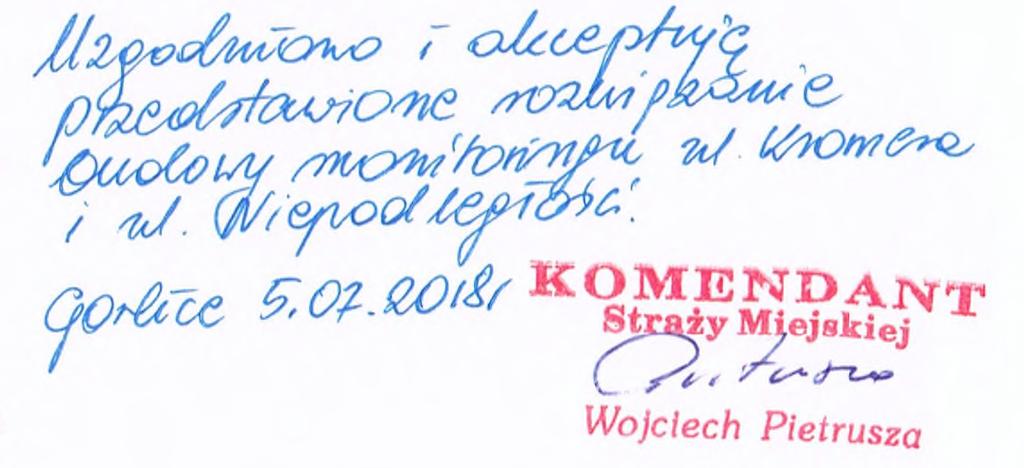 Uzgodniono i akceptuję
przedstawione rozwiązanie
budowy monitoringu ul. Kromera
i ul. Niepodległości.
Gorlice 5.07.2018r
KOMENDANT
Straży Miejskiej
Wojciech Pietrusza